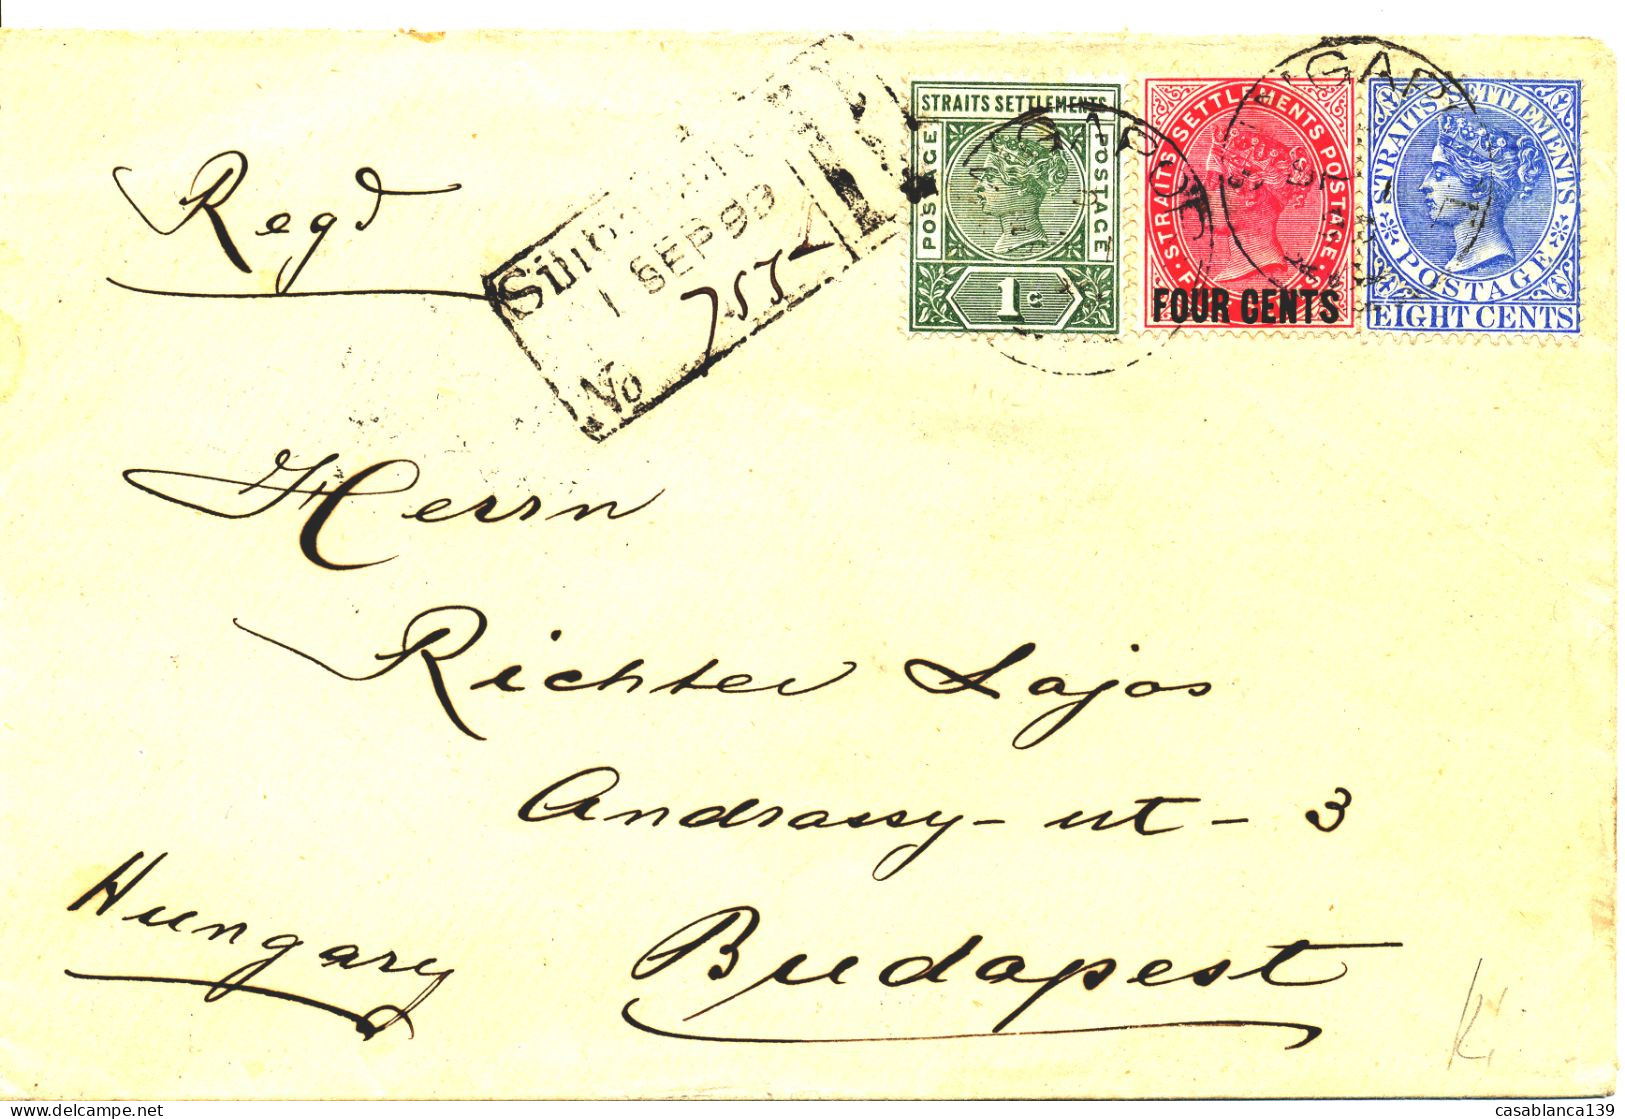 Regd
Singapore
1 SEP 99
No
STRAITS SETTLEMENTS
POSTAGE
POSTAGE
1c
STRAITS SETTLEMENTS POSTAGE
FOUR CENTS
STRAITS SETTLEMENTS
POSTAGE
EIGHT CENTS
Herrn
Richter Lajos
Andrassy-ut-3
Budapest
Hungary
delcampe.net
casablanca139